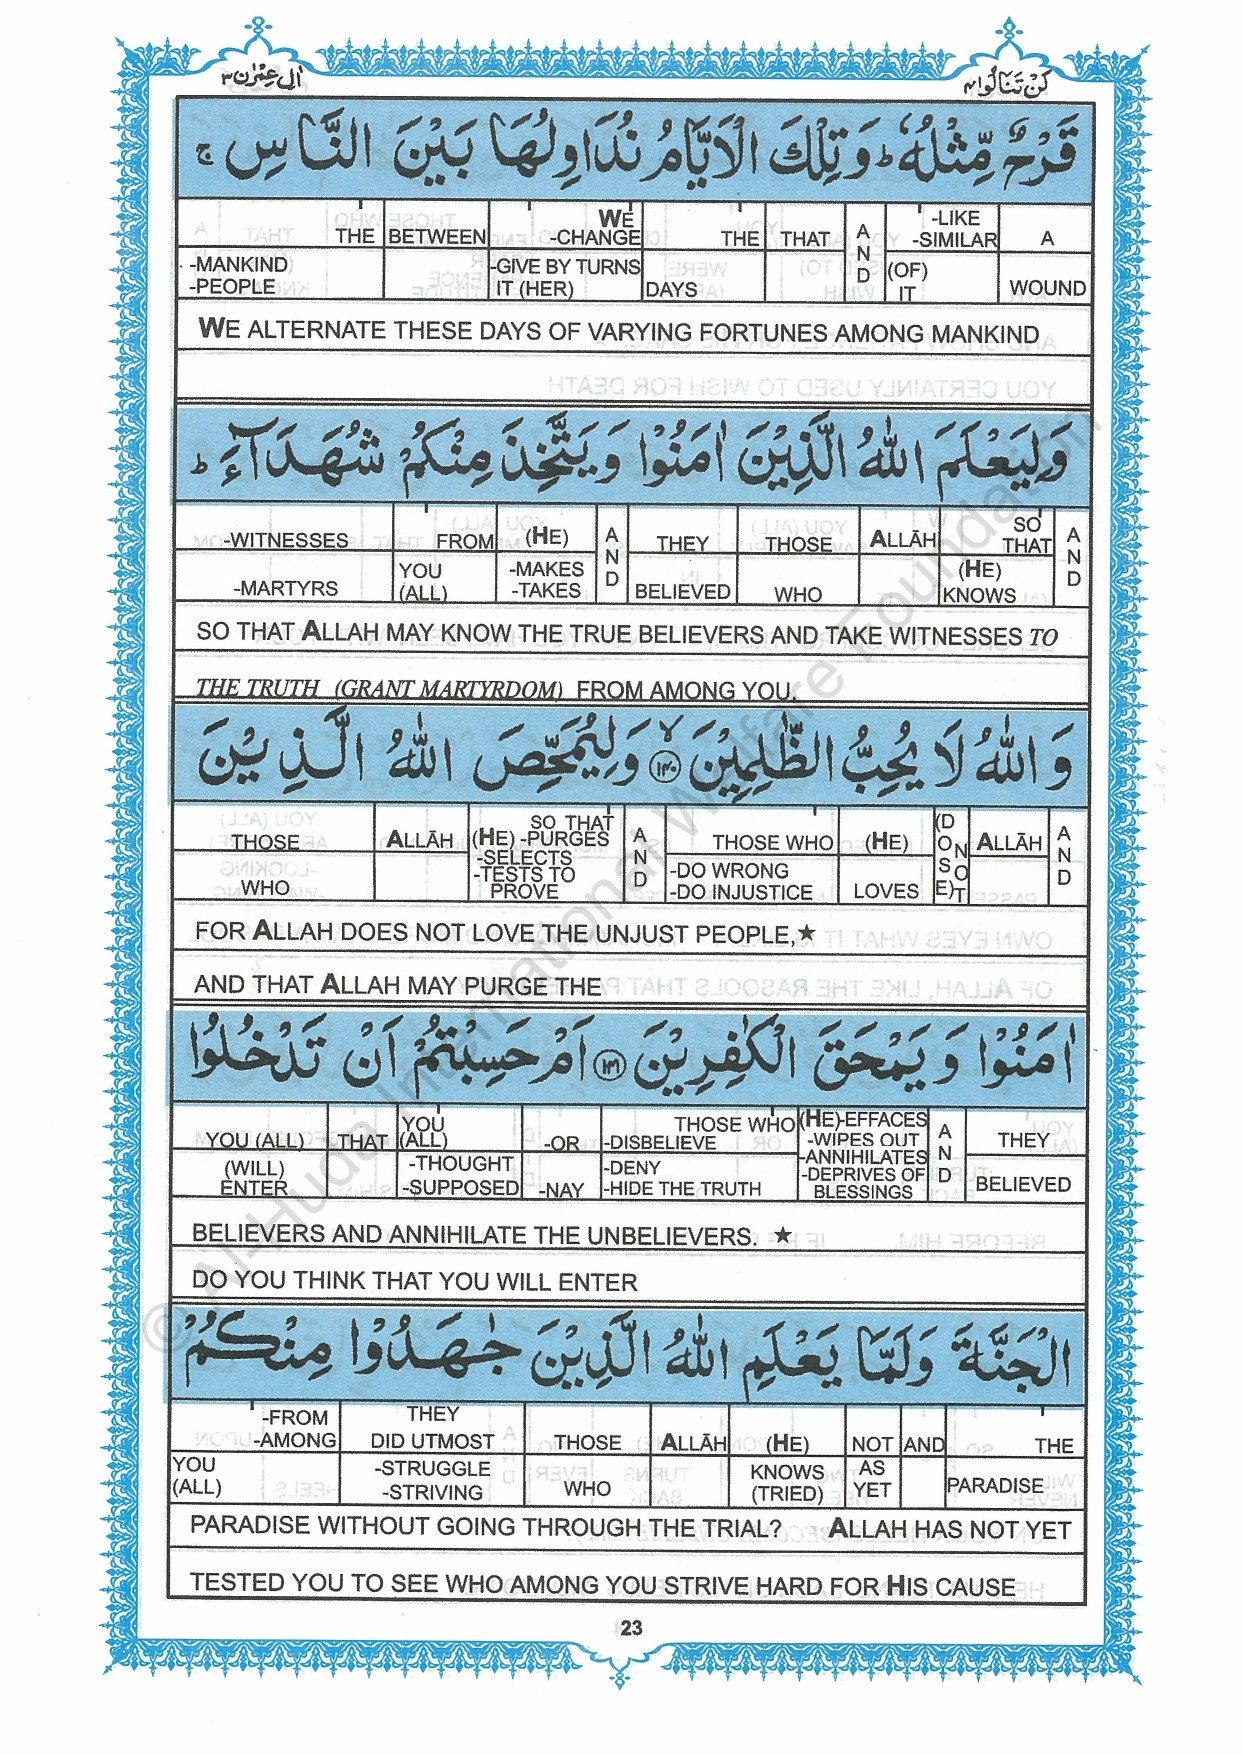 اٰلِ عِمْرٰن ٣
لَنْ تَنَالُوا ٤
قَرْحٌ مِّثْلُهٗ ؕ وَتِلْكَ الْاَيَّامُ نُدَاوِلُهَا بَيْنَ النَّاسِ ۚ
THE BETWEEN WE -CHANGE THE THAT AND -LIKE -SIMILAR A
-MANKIND -PEOPLE -GIVE BY TURNS IT (HER) DAYS (OF) IT WOUND
WE ALTERNATE THESE DAYS OF VARYING FORTUNES AMONG MANKIND
وَلِيَعْلَمَ اللّٰهُ الَّذِيْنَ اٰمَنُوْا وَيَتَّخِذَ مِنْكُمْ شُهَدَآءَ ؕ
-WITNESSES FROM (HE) AND THEY THOSE ALLĀH SO THAT AND
-MARTYRS YOU (ALL) -MAKES -TAKES BELIEVED WHO (HE) KNOWS
SO THAT ALLAH MAY KNOW THE TRUE BELIEVERS AND TAKE WITNESSES TO
THE TRUTH (GRANT MARTYRDOM) FROM AMONG YOU.
وَاللّٰهُ لَا يُحِبُّ الظّٰلِمِيْنَ ۙ ١٤٠ وَلِيُمَحِّصَ اللّٰهُ الَّذِيْنَ
THOSE ALLĀH SO THAT (HE) -PURGES -SELECTS -TESTS TO PROVE AND THOSE WHO (HE) (DOES) NOT ALLĀH AND
WHO -DO WRONG -DO INJUSTICE LOVES
FOR ALLAH DOES NOT LOVE THE UNJUST PEOPLE,★
AND THAT ALLAH MAY PURGE THE
اٰمَنُوْا وَيَمْحَقَ الْكٰفِرِيْنَ ١٤١ اَمْ حَسِبْتُمْ اَنْ تَدْخُلُوا
YOU (ALL) THAT YOU (ALL) -OR THOSE WHO -DISBELIEVE (HE)-EFFACES -WIPES OUT -ANNIHILATES -DEPRIVES OF BLESSINGS AND THEY
(WILL) ENTER -THOUGHT -SUPPOSED -NAY -DENY -HIDE THE TRUTH BELIEVED
BELIEVERS AND ANNIHILATE THE UNBELIEVERS. ★
DO YOU THINK THAT YOU WILL ENTER
الْجَنَّةَ وَلَمَّا يَعْلَمِ اللّٰهُ الَّذِيْنَ جٰهَدُوْا مِنْكُمْ
-FROM -AMONG THEY DID UTMOST THOSE ALLĀH (HE) NOT AND THE
YOU (ALL) -STRUGGLE -STRIVING WHO KNOWS (TRIED) AS YET PARADISE
PARADISE WITHOUT GOING THROUGH THE TRIAL? ALLAH HAS NOT YET
TESTED YOU TO SEE WHO AMONG YOU STRIVE HARD FOR HIS CAUSE
23
© Al-Huda International Welfare Foundation